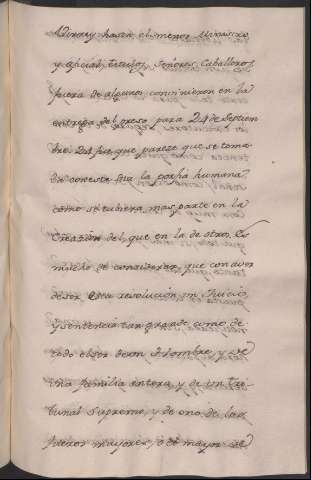 Virrey hasta el menor Ministro
y oficial, Titulos, Señores, Caballeros,
fuera de algunos convinieron en la
entrega del preso para 24 de Septiem
bre. Que fue que pareze que se toma
ba con este dia la porfia humana
como si tubiera mas parte en la
Creazion del, que en la de otro. Es
mucho de considerar que con aver
de ser esta resolucion, un Juicio
y sentencia tan grande como de
todo el ser de un Hombre, y de
una familia entera, y de un Tri-
bunal Supremo, y de uno de los
pleitos mayores, o el mayor de